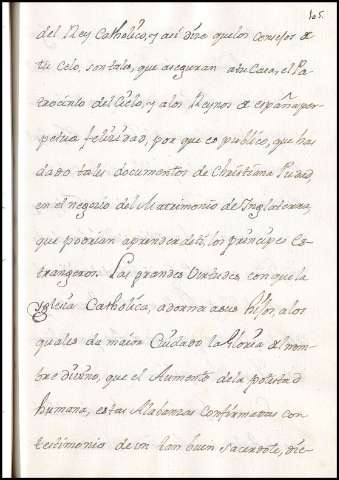 105.
del Rey Catholico, y asi dice que los consejos de
tu celo, son tales, que aseguran a tu Casa, el Pa-
trocinio del Cielo, y a los Reynos de españa per-
petua felicidad, por que es publico, que has
dado tales documentos de Christiana Piedad,
en el negocio del Matrimonio de Inglaterra,
que podrian aprender de ti, los principes Es-
trangeros. Las grandes Virtudes con que la
Yglesia Catholica, adorna a sus hijos, a los
quales da maior Cuidado la Gloria del nom-
bre divino, que el Aumento de la potestad
humana, estas Alabanzas confirmadas con
testimonio de un tan buen sacerdote, die-